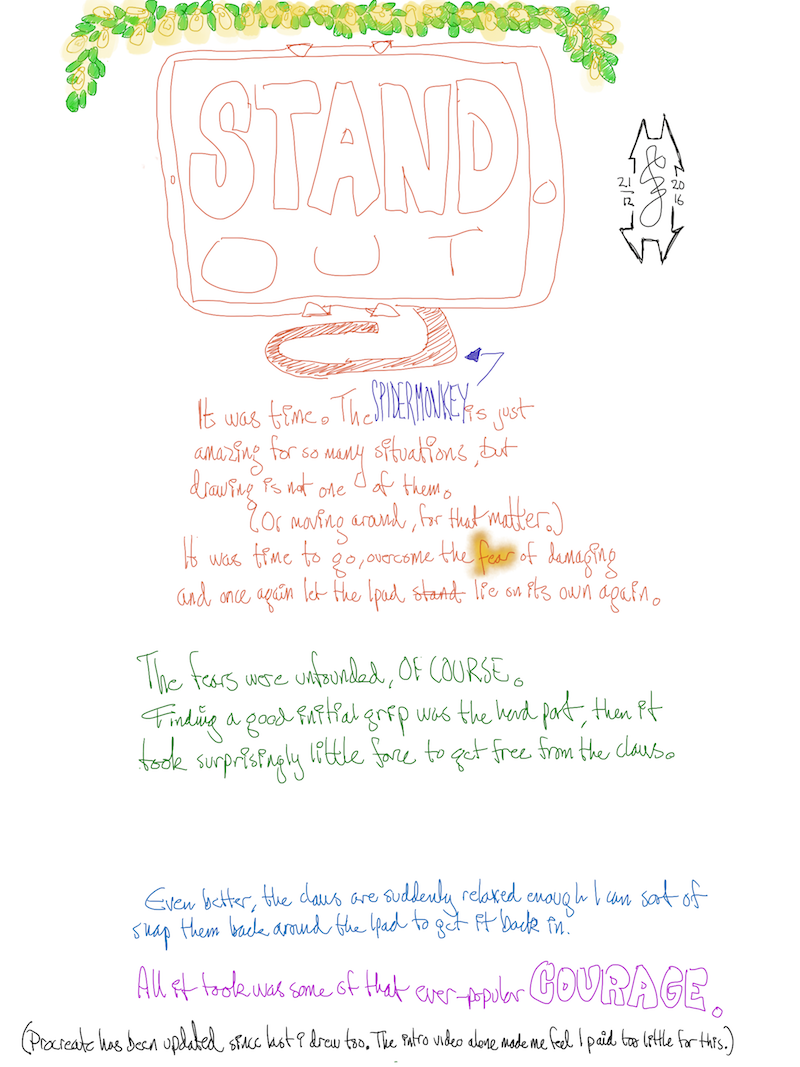 STAND
OUT
21/12 2016
It was time. The SPIDERMONKEY is just
amazing for so many situations, but
drawing is not one of them.
(Or moving around, for that matter.)
It was time to go, overcome the fear of damaging
and once again let the Ipad stand lie on its own again.
The fears were unfounded, OF COURSE.
Finding a good initial grip was the hard part, then it
took surprisingly little force to get free from the claws.
Even better, the claws are suddenly relaxed enough I can sort of
snap them back around the Ipad to get it back in.
All it took was some of that ever-popular COURAGE.
(Procreate has been updated since last I drew too. The intro video alone made me feel I paid too little for this.)